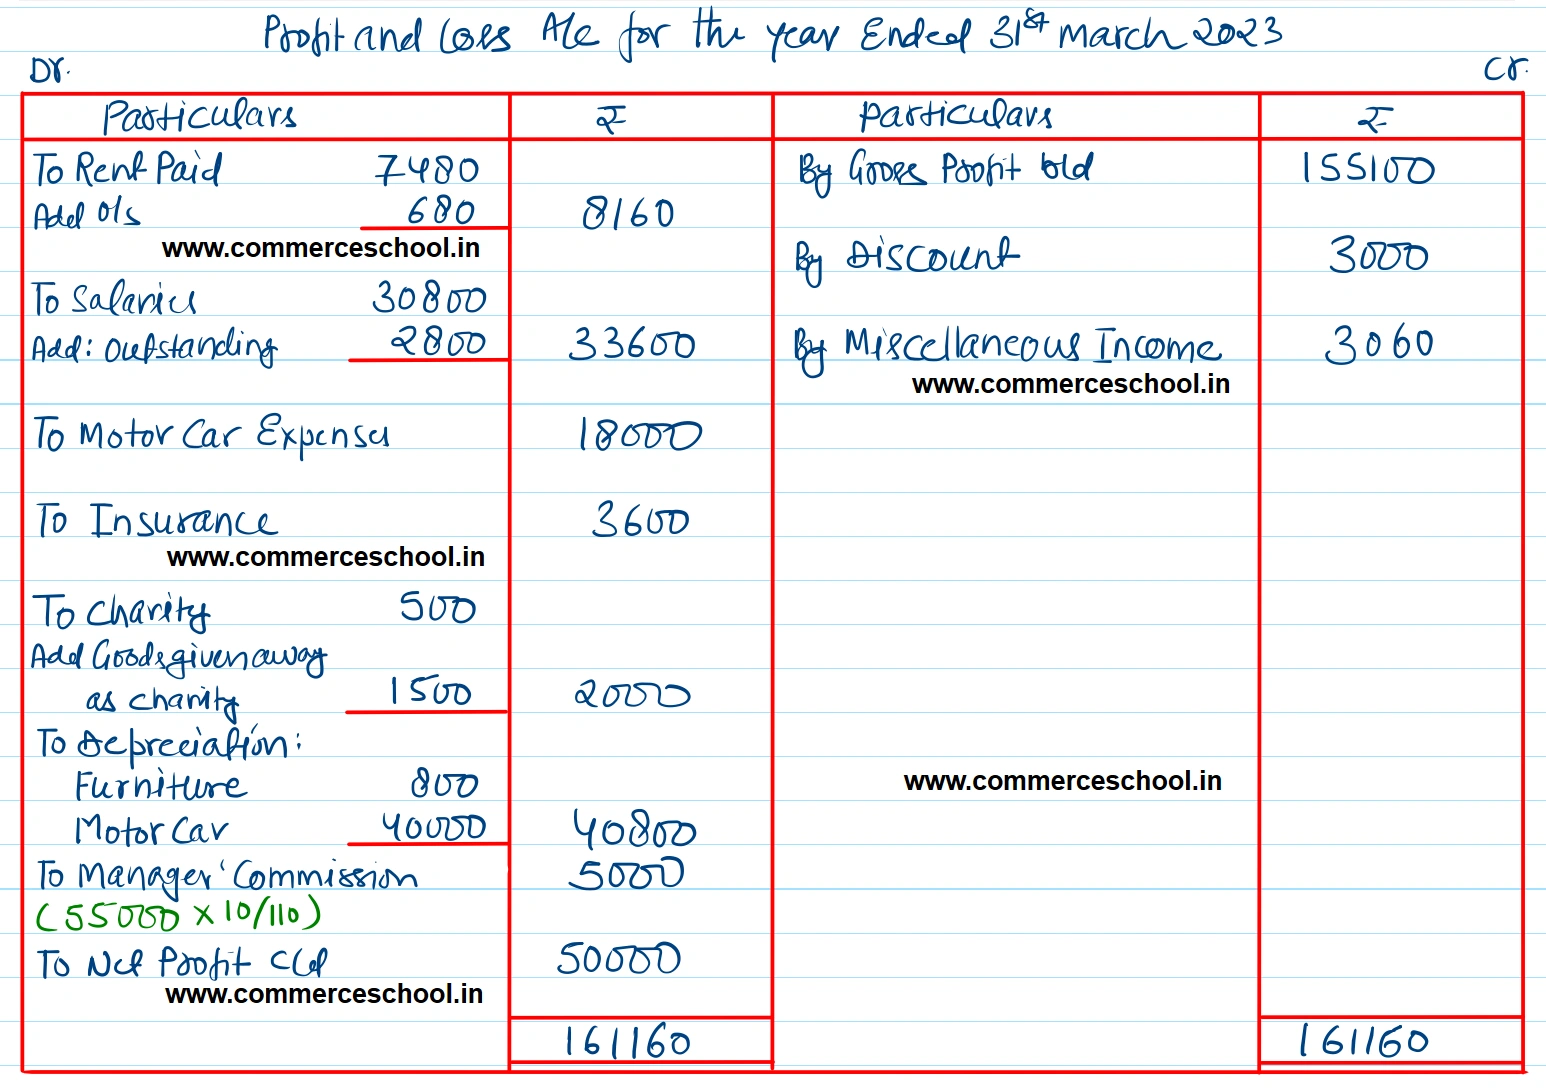 Profit and Loss A/c for the year Ended 31st March 2023
Dr. Cr.
Particulars ₹ Particulars ₹
To Rent Paid 7480 By Gross Profit b/d 155100
Add o/s 680 8160
www.commerceschool.in
By Discount 3000
To Salaries 30800
Add: Outstanding 2800 33600 By Miscellaneous Income 3060
www.commerceschool.in
To Motor Car Expenses 18000
To Insurance 3600
www.commerceschool.in
To Charity 500
Add Goods given away
as charity 1500 2000
To Depreciation:
Furniture 800 www.commerceschool.in
Motor Car 40000 40800
To Manager' Commission 5000
(55000 x 10/110)
To Net Profit c/d 50000
www.commerceschool.in
161160 161160